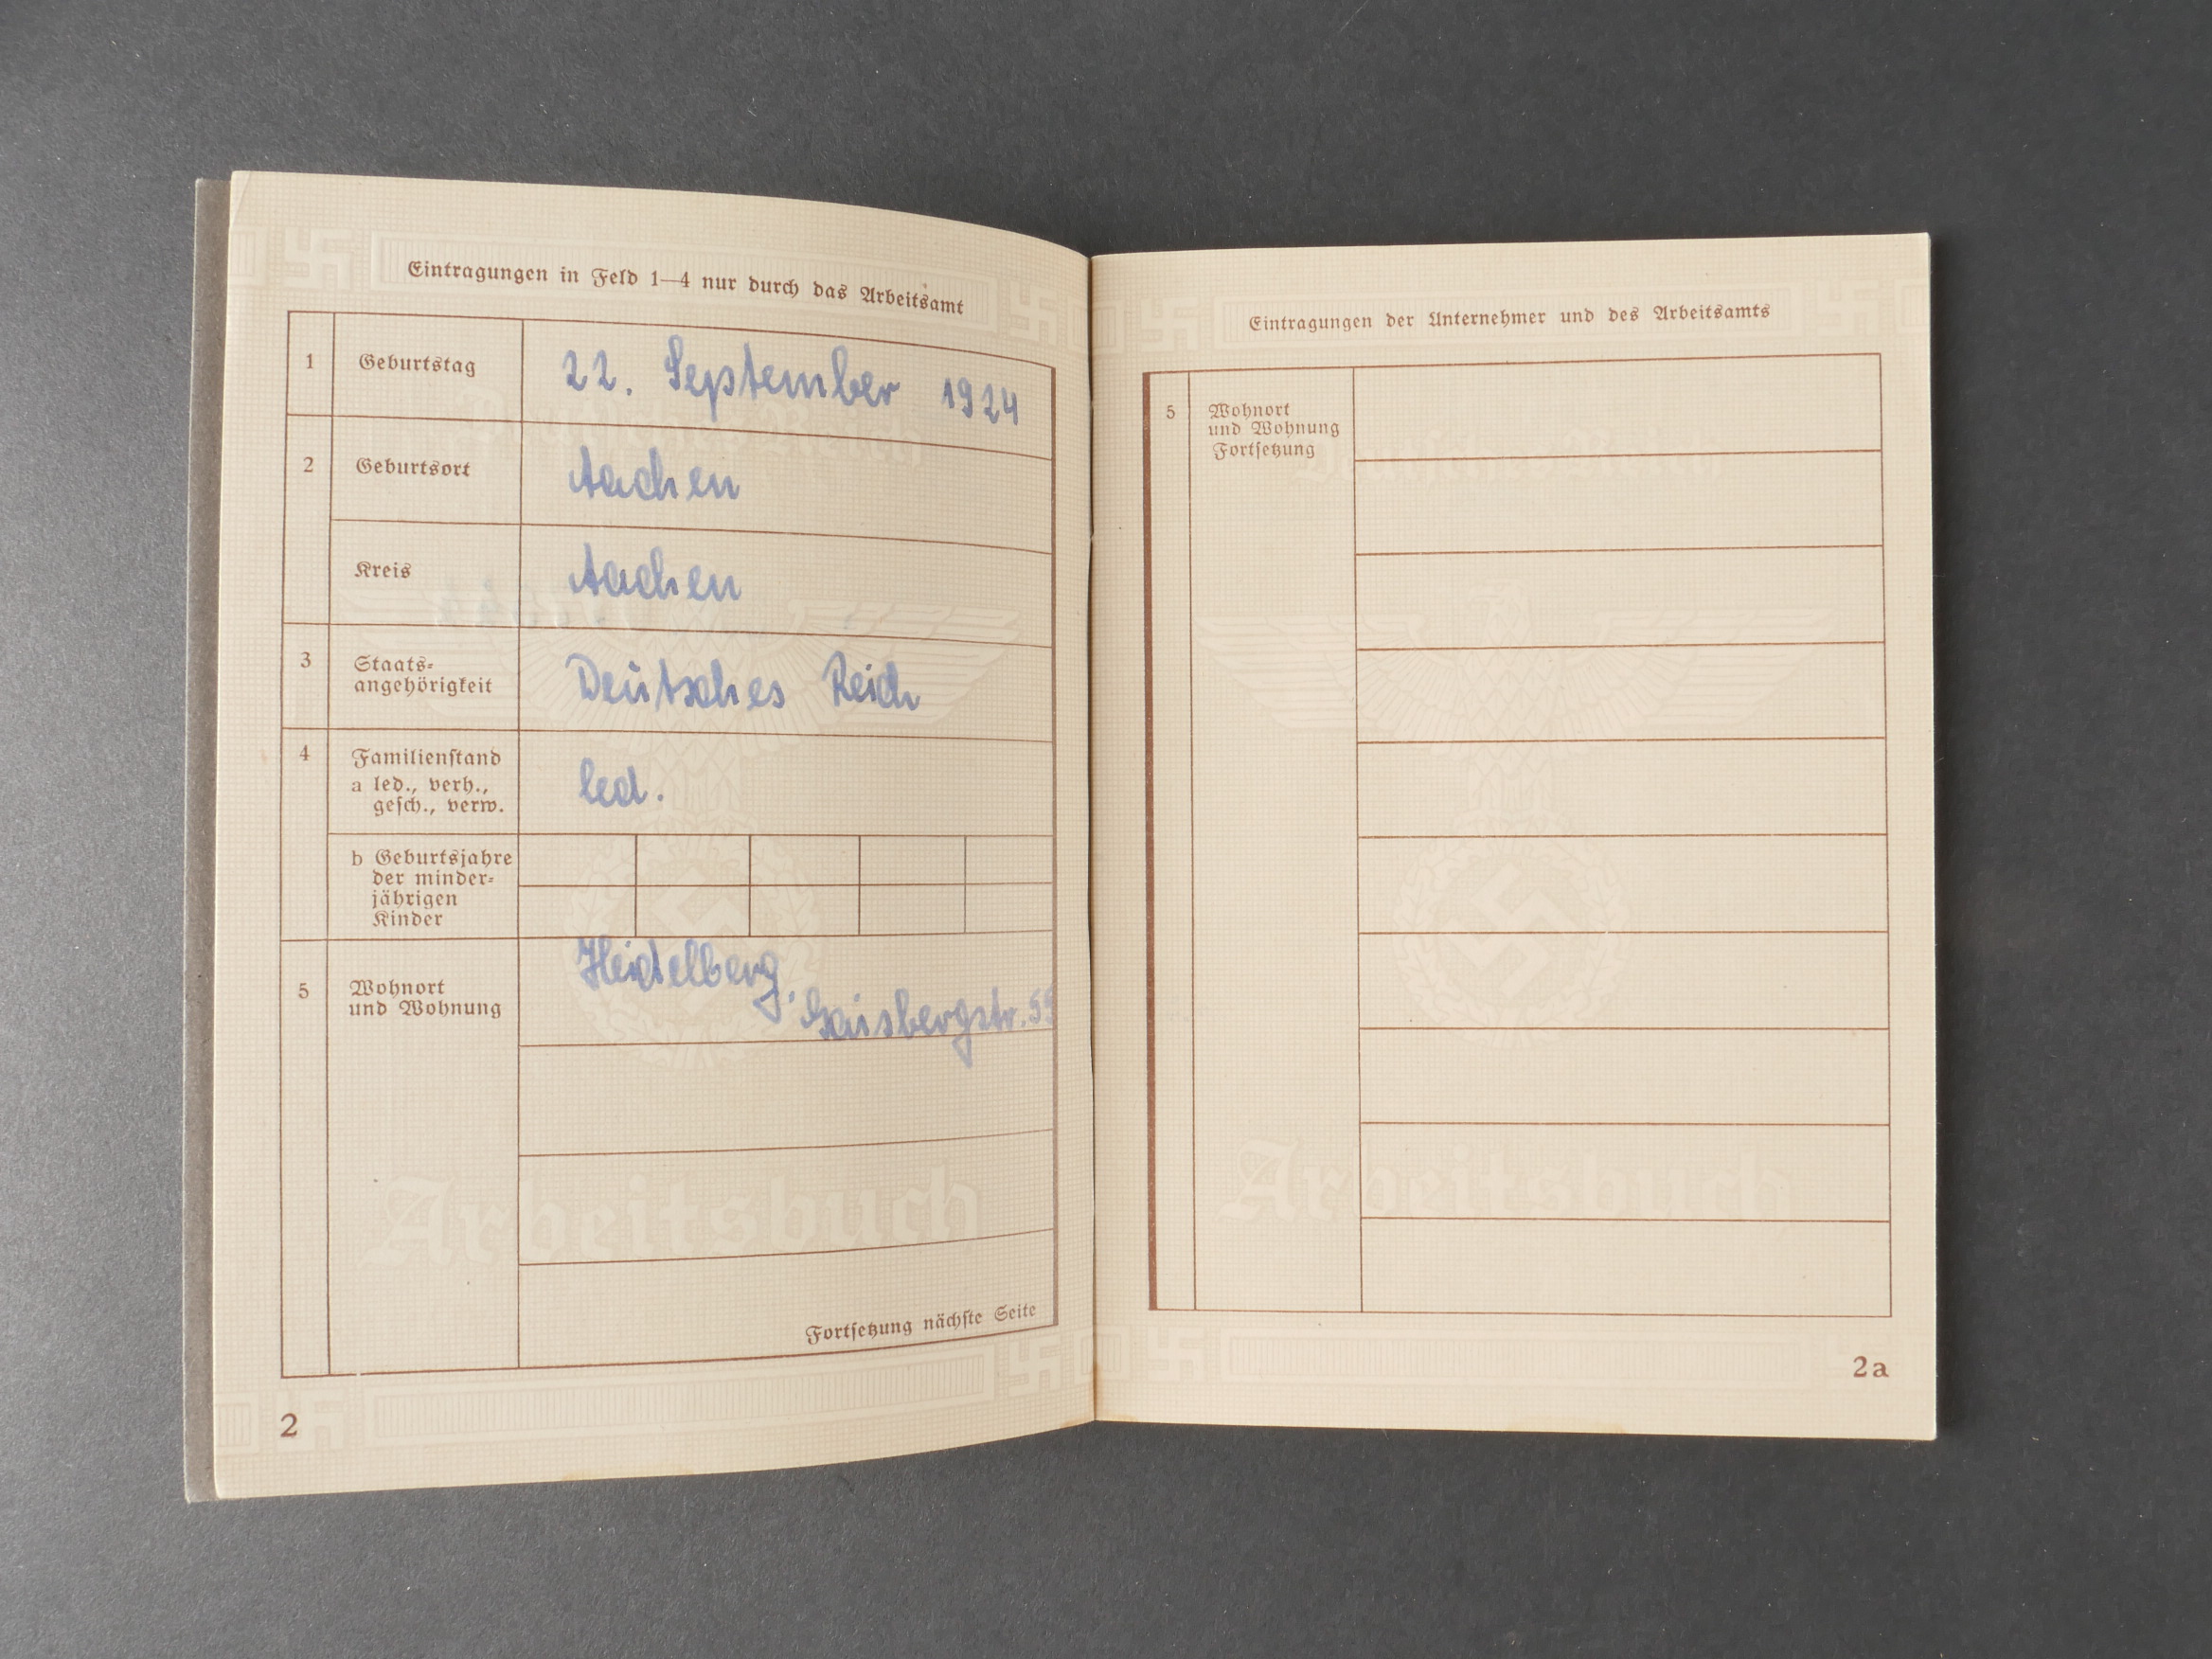 Eintragungen in Feld 1—4 nur durch das Arbeitsamt
1 Geburtstag 22. September 1924
2 Geburtsort Aachen
Kreis Aachen
3 Staats-
angehörigkeit Deutsches Reich
4 Familienstand
a led., verh.,
gesch., verw. led.
b Geburtsjahre
der minder-
jährigen
Kinder
Heidelberg,
5 Wohnort
und Wohnung Gaisbergstr.
Fortsetzung nächste Seite
2
Deutsches Reich
Arbeitsbuch
Eintragungen der Unternehmer und des Arbeitsamts
5 Wohnort
und Wohnung
Fortsetzung
Deutsches Reich
Arbeitsbuch
2a